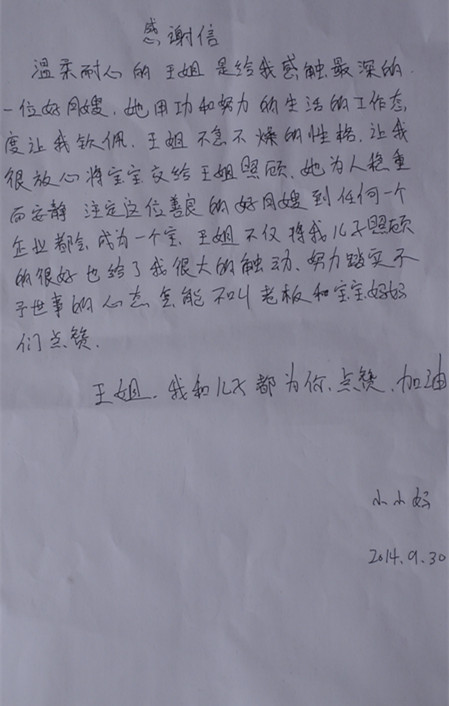 感谢信
温柔耐心的王姐是给我感触最深的
一位好月嫂.她用功和努力的生活的工作态
度让我钦佩.王姐不急不燥的性格.让我
很放心将宝宝交给王姐照顾.她为人稳重
而安静 注定这位善良的好月嫂到任何一个
企业都会成为一个宝.王姐不仅将我儿子照顾
的很好也给了我很大的触动.努力踏实不
于世事的心态怎能不叫老板和宝宝妈妈
们点赞.
王姐.我和儿子都为你.点赞.加油
小小好
2014.9.30